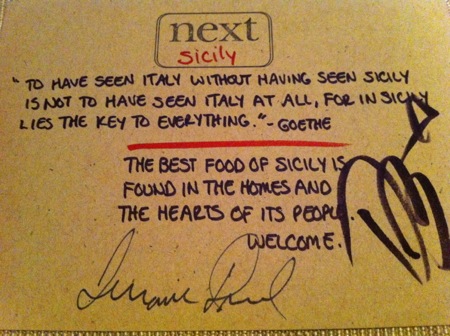 next
Sicily
"TO HAVE SEEN ITALY WITHOUT HAVING SEEN SICILY
IS NOT TO HAVE SEEN ITALY AT ALL, FOR IN SICILY
LIES THE KEY TO EVERYTHING." - GOETHE
THE BEST FOOD OF SICILY IS
FOUND IN THE HOMES AND
THE HEARTS OF ITS PEOPLE.
WELCOME.